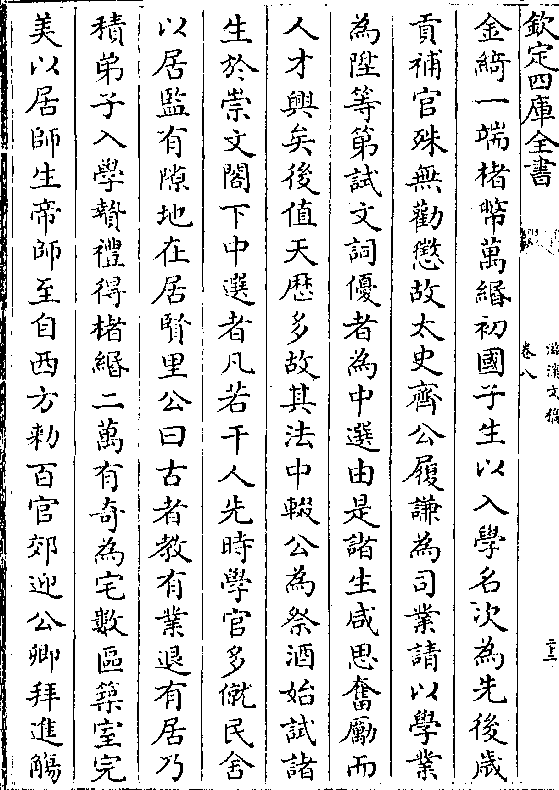 欽定四庫全書
滋溪文稿
卷八
金綺一端楮幣萬緡初國子生以入學名次為先後歲
貢補官殊無勸懲故太史齊公履謙為司業請以學業
為陞等第試文詞優者為中選由是諸生咸思奮勵而
人才興矣後值天厯多故其法中輟公為祭酒始試諸
生於崇文閣下中選者凡若干人先時學官多僦民舍
以居監有隙地在居賢里公曰古者教有業退有居乃
積弟子入學贄禮得楮緡二萬有奇為宅數區築室完
美以居師生帝師至自西方勅百官郊迎公卿拜進觴